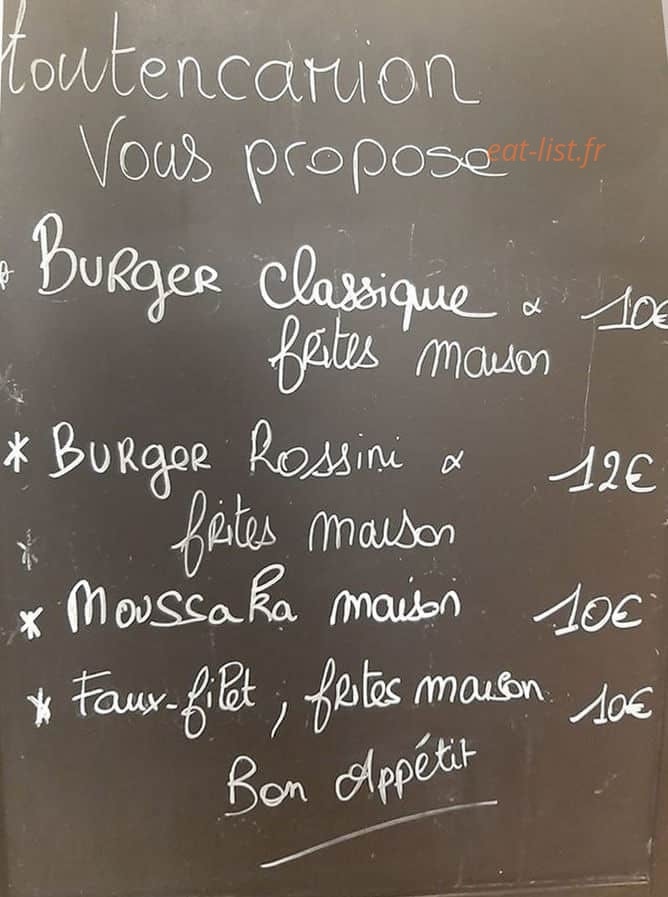 toutencamion
Vous propose
eat-list.fr
* Burger classique & 10€
frites maison
* Burger Rossini & 12€
frites maison
* Moussaka maison 10€
* Faux-filet, frites maison 10€
Bon Appétit